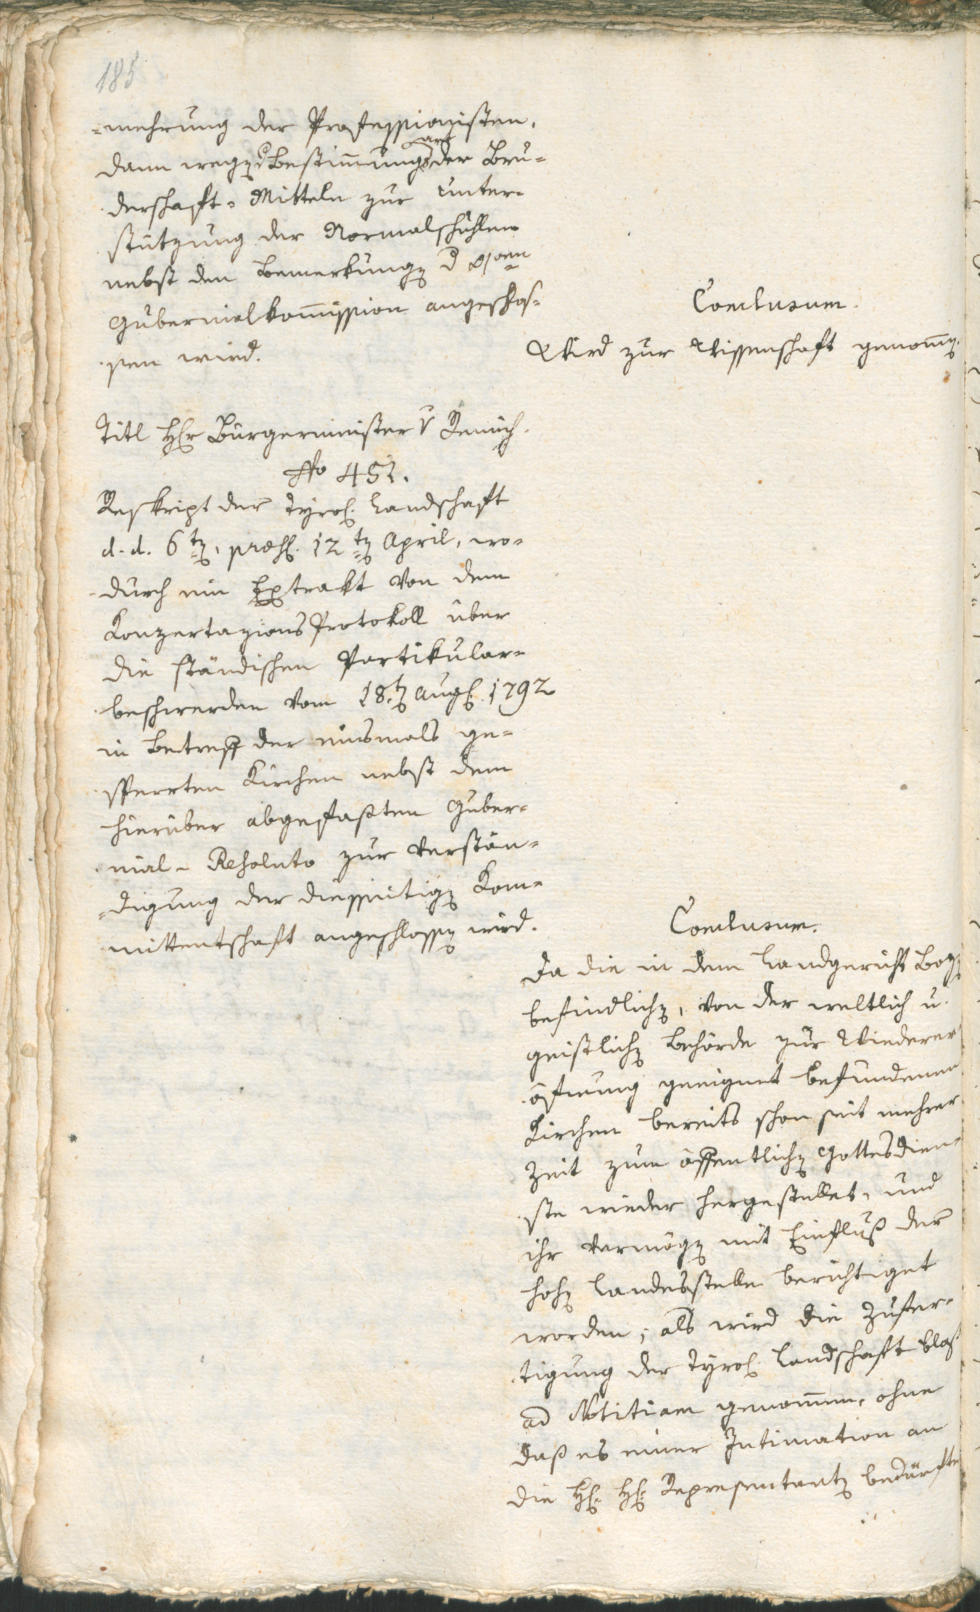 185
-mehrung der Professionisten,
dann wegen Bestim̄ung der Bru-
derschaft-Mitteln zur Unter-
stützung der Normalschullen
nebst den Bemerkungen
Gubernialkom̄ission angeschlos-
sen wird.
Conclusum.
Wird zur Wissenschaft genom̄en.
Titl H: Bürgermeister v Remich.
No 451.
Reskript der Tyrol: Landschaft
d. d. 6ten, præs: 12ten April, wo-
durch ein Extrakt von dem
Konzertazions Protokoll über
die ständischen Partikular-
beschwerden vom 18ten Aug: 1792
in Betreff der einsmals ge-
sperrten Kirchen nebst dem
hierüber abgefaßten Guber-
nial-Resoluto zur Verstän-
digung der diesseitigen Kom-
mittentschaft angeschlossen wird.
Conclusum.
Da die in dem Landgericht Bozen
befindlichen, von der weltlich u.
geistlichen Behörde zur Wiederer
öfnung geeignet befundenen
Kirchen bereits schon seit mehrer
Zeit zum öffentlichen Gottesdien-
ste wieder hergestellet, und
ihr Vermögen mit Einfluß der
hohen Landesstelle berichtiget
worden; als wird die Zufer-
tigung der Tyrol: Landschaft bloß
ad Notitiam genom̄en, ohne
daß es einer Intimation an
die H: H: Representanten bedürfte